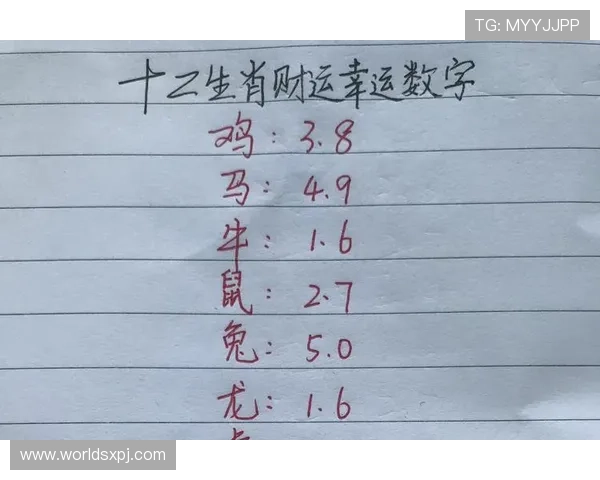 TG: MYYJJPP
十二生肖财运幸运数字
鸡: 3.8
马: 4.9
牛: 1.6
鼠: 2.7
兔: 5.0
龙: 1.6
www.worldsxpj.com